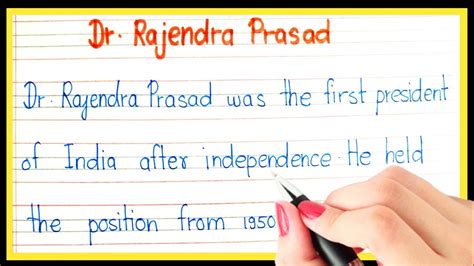 Dr. Rajendra Prasad
Dr. Rajendra Prasad was the first president
of India after independence. He held
the position from 1950